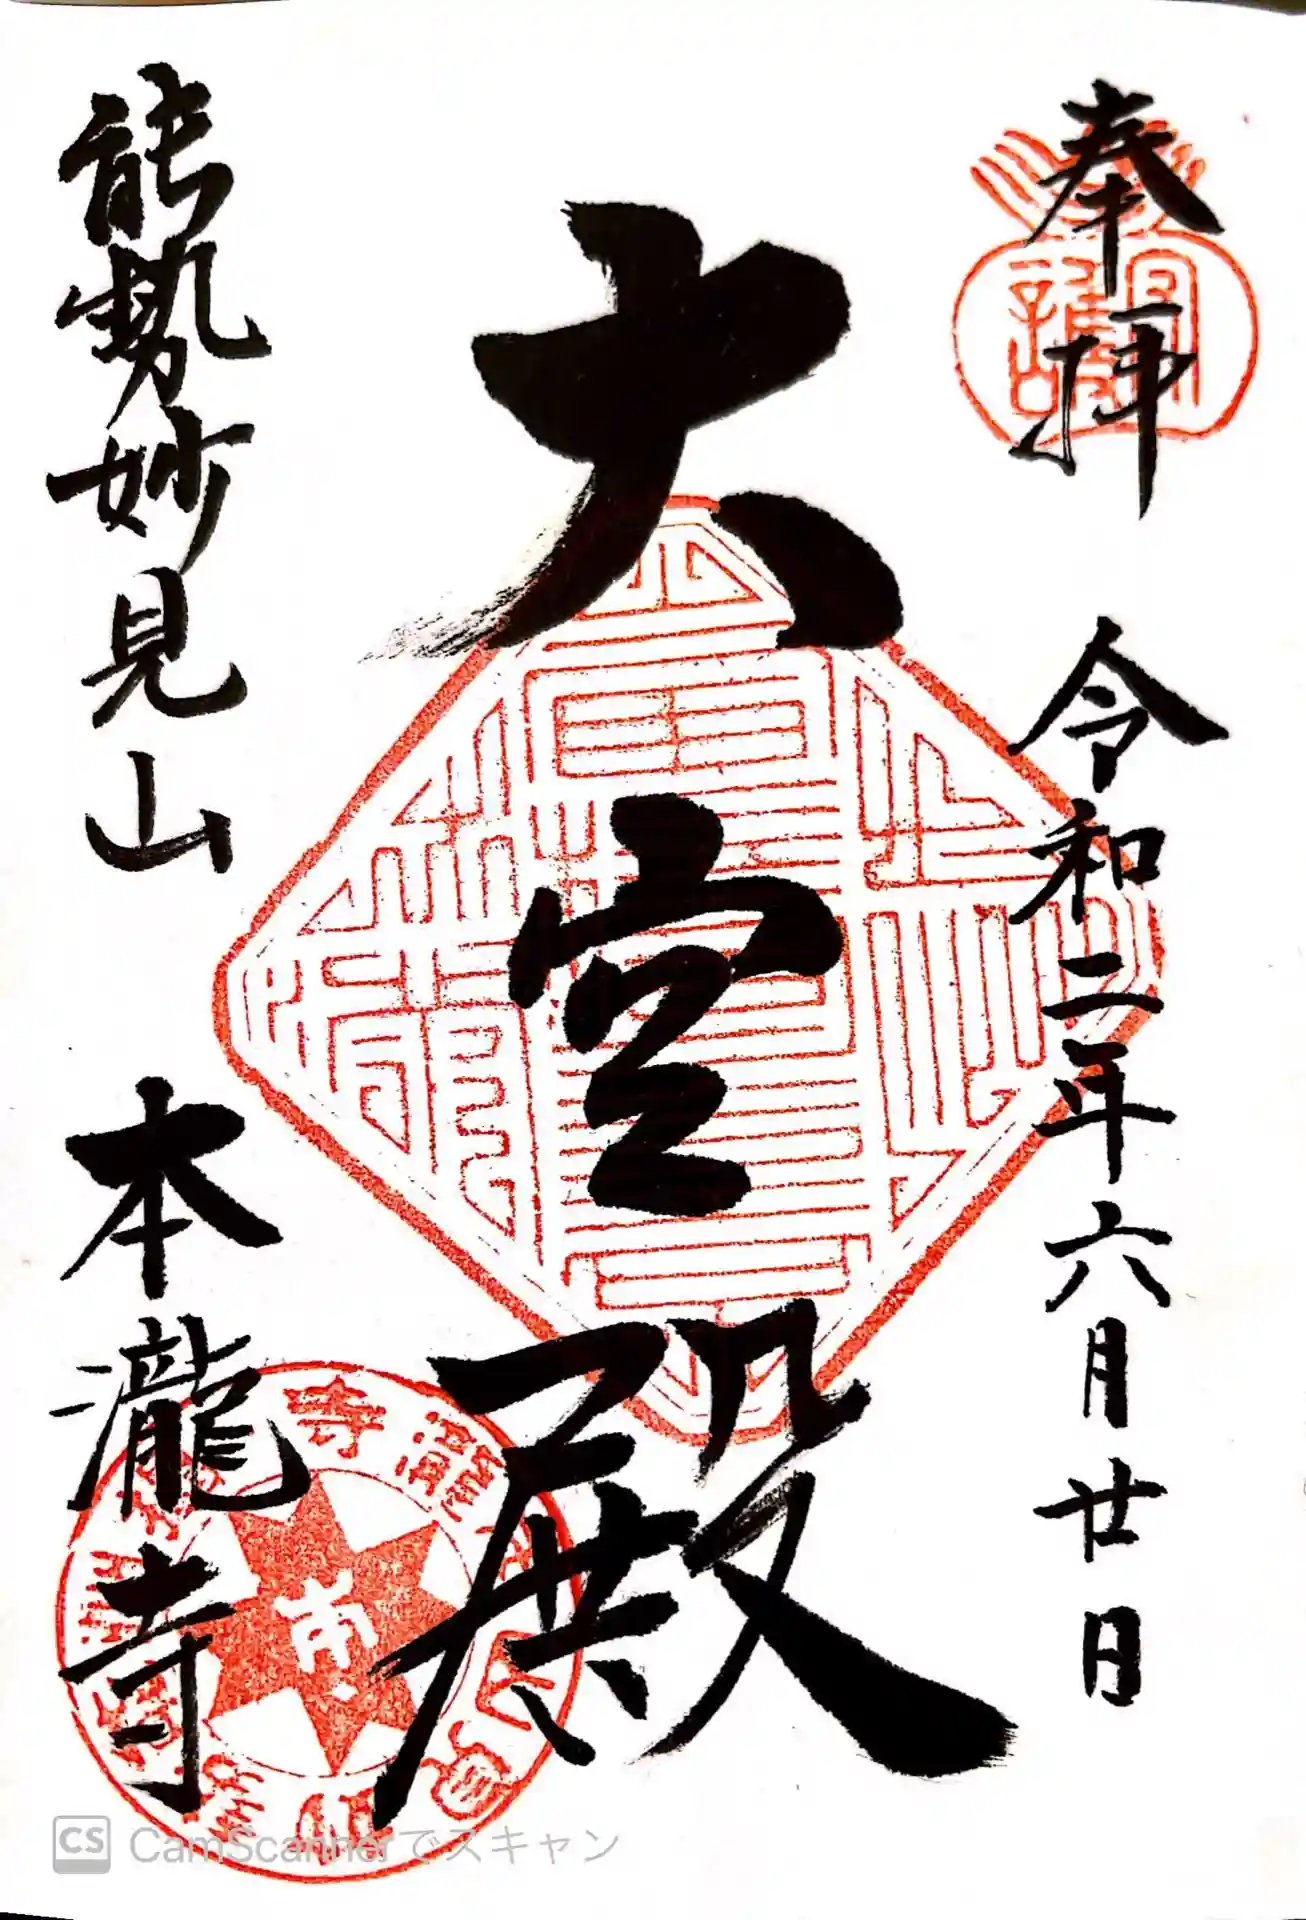 奉拝　令和二年六月廿日
大空殿
能勢妙見山　本瀧寺
CS CamScannerでスキャン